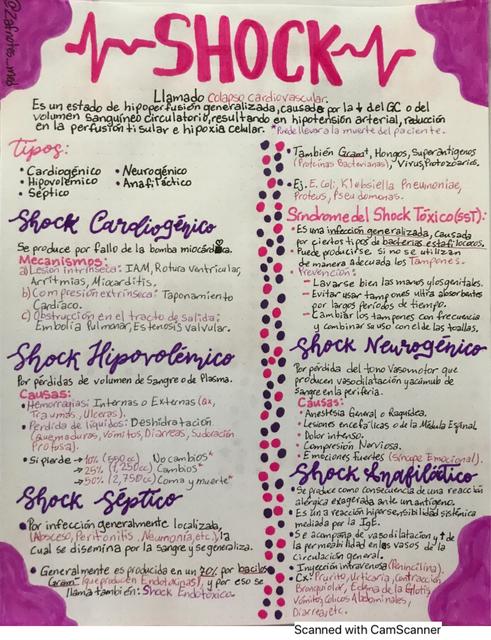 @Zafnotes_med
SHOCK
Llamado Colapso cardiovascular.
Es un estado de hipoperfusión generalizada, causada por la ↓ del GC o del
volumen sanguíneo circulatorio, resultando en hipotensión arterial, reducción
en la perfusión tisular e hipoxia celular. *Puede llevar a la muerte del paciente.
Tipos:
• Cardiogénico
• Hipovolémico
• Séptico
• Neurogénico
• Anafiláctico
Shock Cardiogénico
Se produce por fallo de la bomba miocárdica.
Mecanismos:
a) Lesión intrínseca: IAM, Rotura Ventricular,
Arritmias, Miocarditis.
b) Compresión extrínseca: Taponamiento
Cardíaco.
c) Obstrucción en el tracto de salida:
Embolia Pulmonar, Estenosis Valvular.
Shock Hipovolémico
Por pérdidas de volumen de Sangre o de Plasma.
Causas:
• Hemorragias: Internas o Externas (Qx,
Traumas, Ulceras).
• Perdida de líquidos: Deshidratación
(Quemaduras, Vómitos, Diarreas, Sudoración
Profusa).
• Si pierde → 10% (550cc) No cambios*
→ 25% (1,250cc) Cambios*
→ 50% (2,750cc) Coma y muerte*
Shock Séptico
• Por infección generalmente localizada,
(Absceso, Peritonitis, Neumonía, etc), la
cual se disemina por la sangre y se generaliza.
• Generalmente es producida en un 70% por bacilos
Gram⁻ (que producen Endotoxinas), y por eso se
llama también: Shock Endotóxico.
• También Gram⁺, Hongos, Superantígenos
(Proteínas Bacterianas), Virus, Protozoarios.
• Ej. E. Coli, Klebsiella Pneumoniae,
Proteus, Pseudomonas.
Síndrome del Shock Tóxico (SST):
• Es una infección generalizada, causada
por ciertos tipos de bacterias estafilococos.
• Puede producirse si no se utilizan
de manera adecuada los Tampones.
• Prevención:
– Lavarse bien las manos y los genitales.
– Evitar usar tampones ultra absorbentes
por largos períodos de tiempo.
– Cambiar los tampones con frecuencia
y combinar su uso con el de las toallas.
Shock Neurogénico
Por pérdida del tono Vasomotor que
producen vasodilatación y acúmulo de
Sangre en la periferia.
Causas:
• Anestesia General o Raquídea.
• Lesiones encefálicas o de la Médula Espinal
• Dolor intenso.
• Compresión Nerviosa.
• Emociones fuertes (síncope Emocional).
Shock Anafiláctico
• Se produce como consecuencia de una reacción
alérgica exagerada ante un antígeno.
• Es una reacción hipersensibilidad sistémica
mediada por la IgE.
• Se acompaña de vasodilatación y ↑ de
la permeabilidad en los vasos de la
circulación general.
• Inyección intravenosa (Penincilina).
• Cx: Prurito, Urticaria, Contracción
Bronquiolar, Edema de la Glotis,
Vómitos, Cólicos Abdominales,
Diarrea, etc.
Scanned with CamScanner